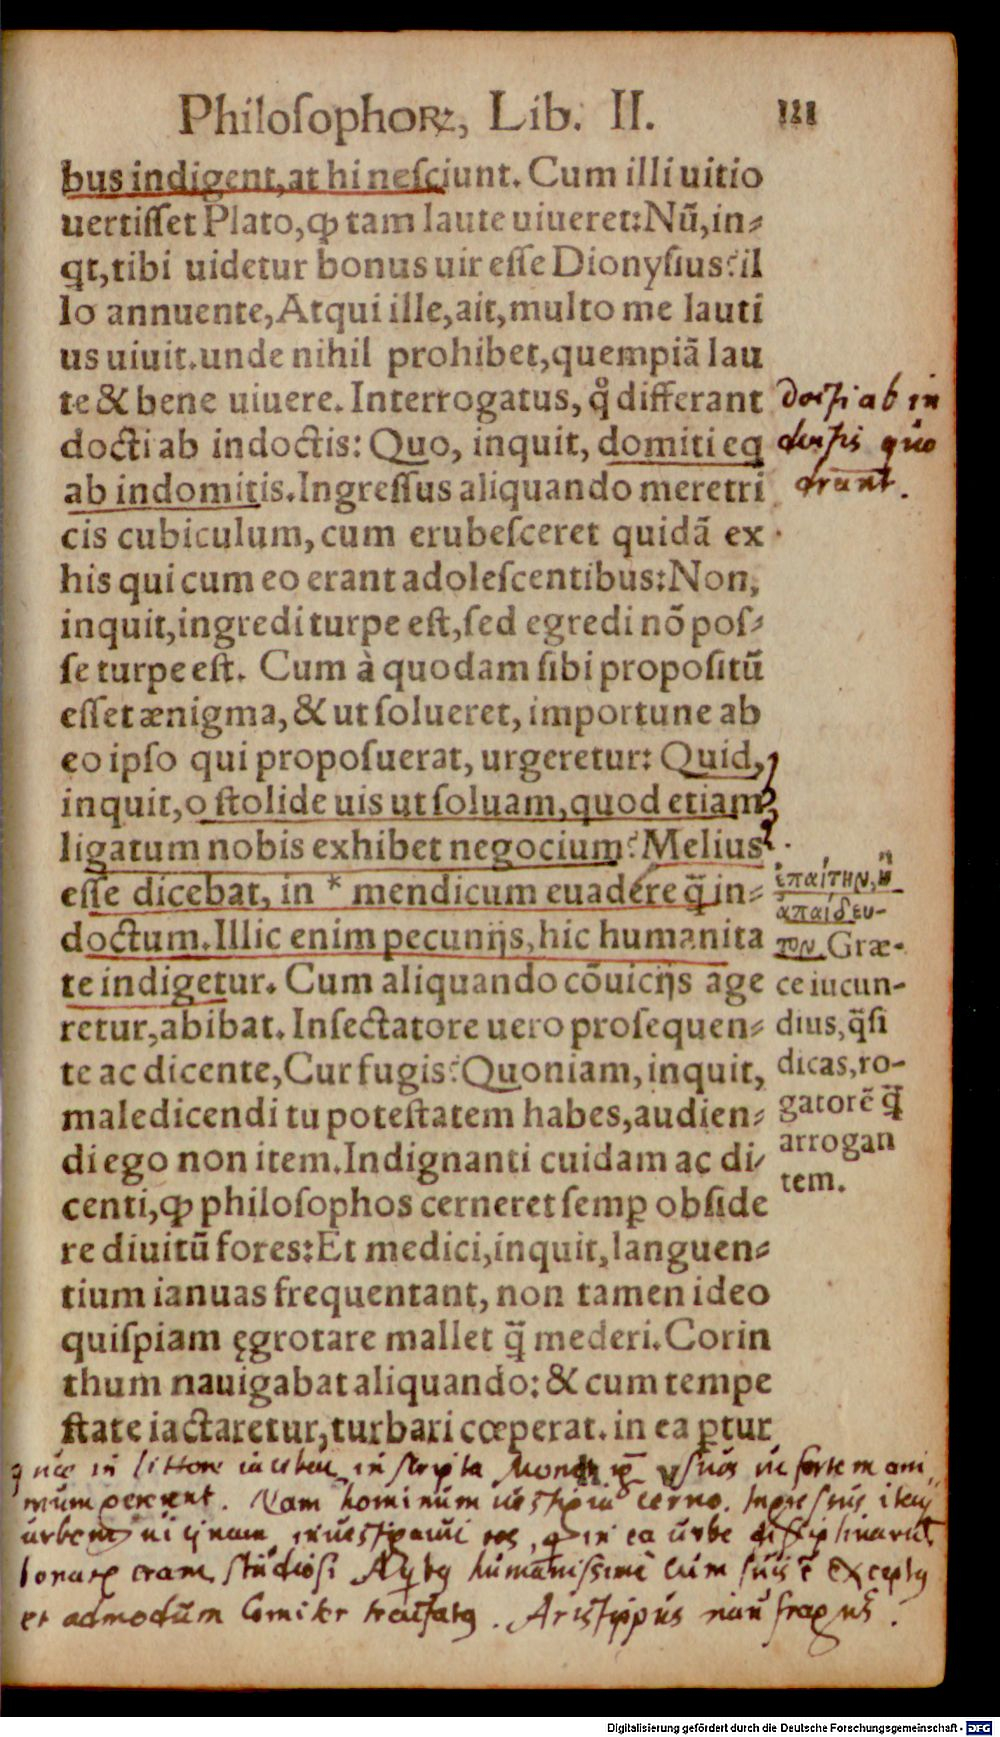 Philoſophoꝝ, Lib. II. 111
bus indigent, at hi neſciunt. Cum illi uitio
uertiſſet Plato, ꝙ tam laute uiueret: Nũ, in⸗
qt, tibi uidetur bonus uir eſſe Dionyſius? il
lo annuente, Atqui ille, ait, multo me lauti
us uiuit. unde nihil prohibet, quempiã lau
te & bene uiuere. Interrogatus, qͦ differant
docti ab indoctis: Quo, inquit, domiti eq
ab indomitis. Ingreſſus aliquando meretri
cis cubiculum, cum erubeſceret quidã ex
his qui cum eo erant adoleſcentibus: Non,
inquit, ingredi turpe eſt, ſed egredi nõ poſ⸗
ſe turpe eſt. Cum à quodam ſibi propoſitũ
eſſet ænigma, & ut ſolueret, importune ab
eo ipſo qui propoſuerat, urgeretur: Quid,
inquit, o ſtolide uis ut ſoluam, quod etiam
ligatum nobis exhibet negocium? Melius
eſſe dicebat, in * mendicum euadere q̃ in⸗
doctum. Illic enim pecunijs, hic humanita
te indigetur. Cum aliquando cõuicijs age
retur, abibat. Inſectatore uero proſequen⸗
te ac dicente, Cur fugis? Quoniam, inquit,
maledicendi tu poteſtatem habes, audien⸗
di ego non item. Indignanti cuidam ac di⸗
centi, ꝙ philoſophos cerneret ſemp̲ obſide
re diuitũ fores: Et medici, inquit, languen⸗
tium ianuas frequentant, non tamen ideo
quiſpiam ęgrotare mallet q̃ mederi. Corin
thum nauigabat aliquando: & cum tempe
ſtate iactaretur, turbari cœperat. in ea ꝑtur
Docti ab in
doctis quo
ἐπαίτην, ἢ
ἀπαίδευ-
τον. Græ-
ce iucun-
dius, q̃ſi
dicas, ro-
gatorẽ q̃
arrogan
tem.
in littore in ſcripta ne forte m ani
mum . Nam hominum ueſtigia cerno. Ingreſſus itaq
urbem in ea urbe
ſtudioſi humaniſſime cum ſuis exceptꝰ
et admodum comiter tractatꝰ. Ariſtippus naufragus.
Digitalisierung gefördert durch die Deutsche Forschungsgemeinschaft - DFG